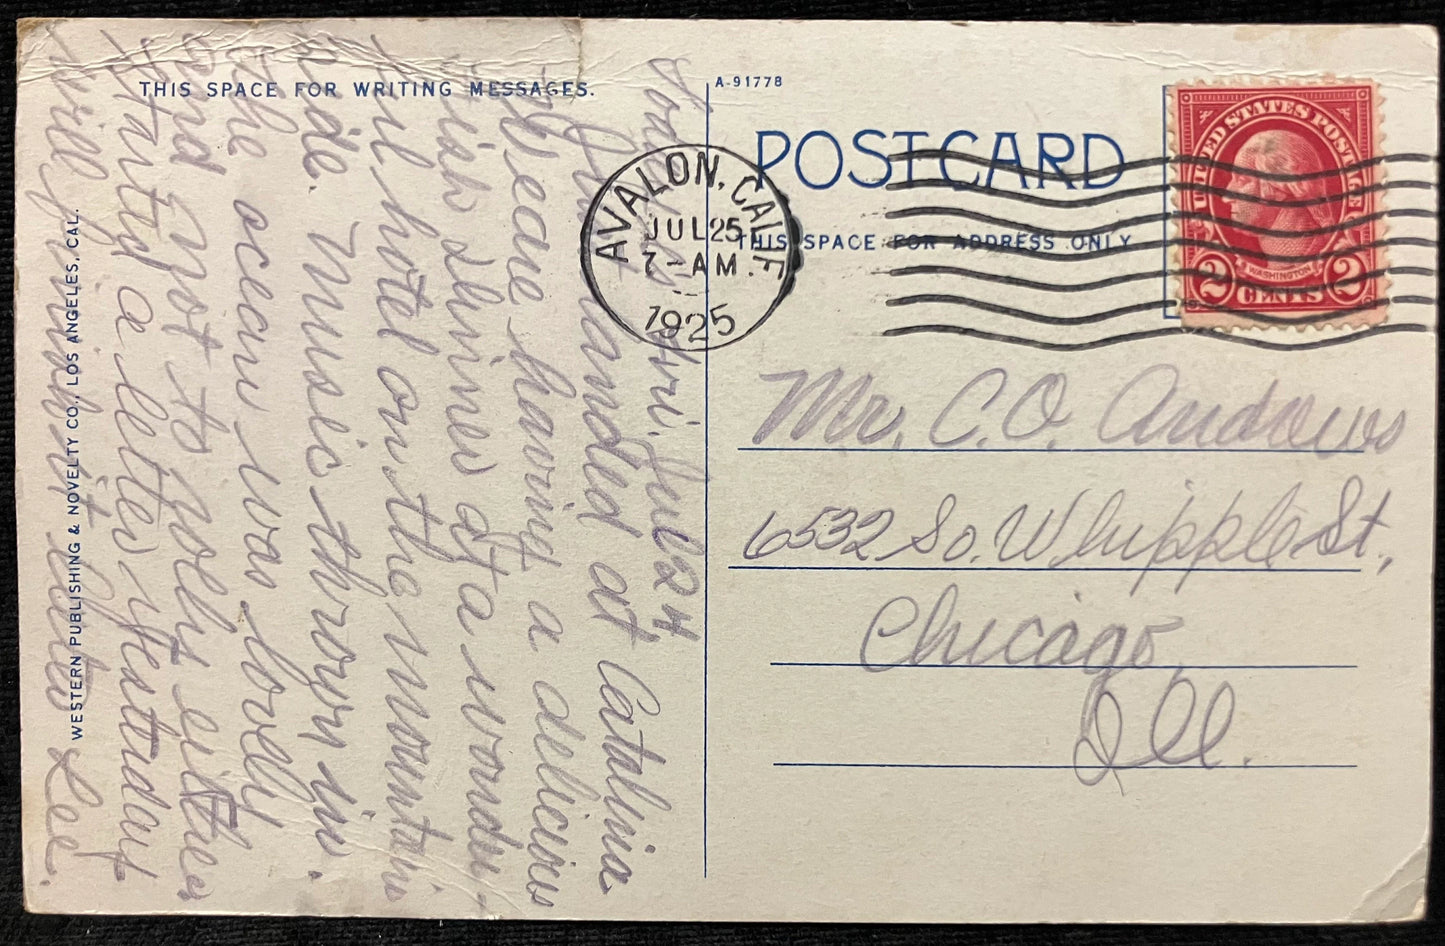 THIS SPACE FOR WRITING MESSAGES.
Today is Fri. Jul 24
Just landed at Catalina
Weare having a delicious
fish dinner at a wonder-
ful hotel on the mountain
side. Music thrown in.
The ocean was lovely
and not to either
Started a letter yesterday
Will finish it later Lee.
WESTERN PUBLISHING & NOVELTY CO., LOS ANGELES, CAL.
A-91778
POST CARD
THIS SPACE FOR ADDRESS ONLY
AVALON, CALIF.
JUL 25
7-AM
1925
UNITED STATES POSTAGE
WASHINGTON
2 CENTS 2
Mr. C. O. Andrews
6532 So. Whipple St,
Chicago,
Ill.